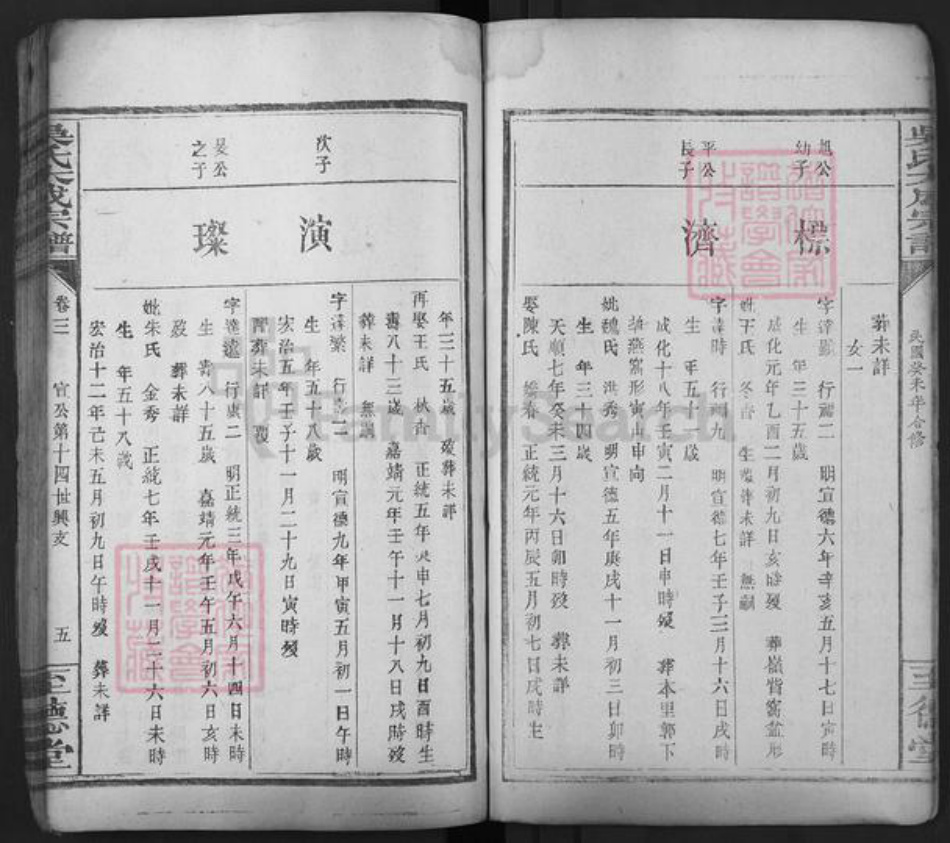 吳氏大成宗譜
民國癸未年合修
至德堂
葬未詳
女一
旭公
幼子
標
字達顯 行福二 明宣德六年辛亥五月十七日寅時
生 年三十五歲
成化元年乙酉二月初九日亥時歿 葬嶺背窩盆形
姓王氏 冬 生歿葬未詳 無嗣
平公
長子
濟
字達時 行福九 明宣德七年壬子三月十六日戌時
生 年五十一歲
成化十八年壬寅二月十一日申時歿 葬本里郭下
雄燕窩形寅山申向
妣魏氏 洪秀 明宣德五年庚戌十一月初三日卯時
生 年三十四歲
天順七年癸未三月十六日卯時歿 葬未詳
娶陳氏 春 正統元年丙辰五月初七日戌時生
年三十五歲 歿葬未詳
再娶王氏 秋香 正統五年庚申七月初九日酉時生
壽八十三歲 嘉靖元年壬午十一月十八日戌時歿
葬未詳 無嗣
次子
演
字達繁 行 明宣德九年甲寅五月初一日午時
生 年五十八歲
宏治五年壬子十一月二十九日寅時歿
葬未詳
旻公
之子
璨
字達遠 行康二 明正統三年戊午六月十四日未時
生 壽八十五歲 嘉靖元年壬午五月初六日亥時
歿 葬未詳
妣朱氏 金秀 正統七年壬戌十一月二十六日未時
生 年五十八歲
宏治十二年己未五月初九日午時歿 葬未詳
吳氏大成宗譜
卷三 宣公第十四世興支 五
至德堂
FamilySearch